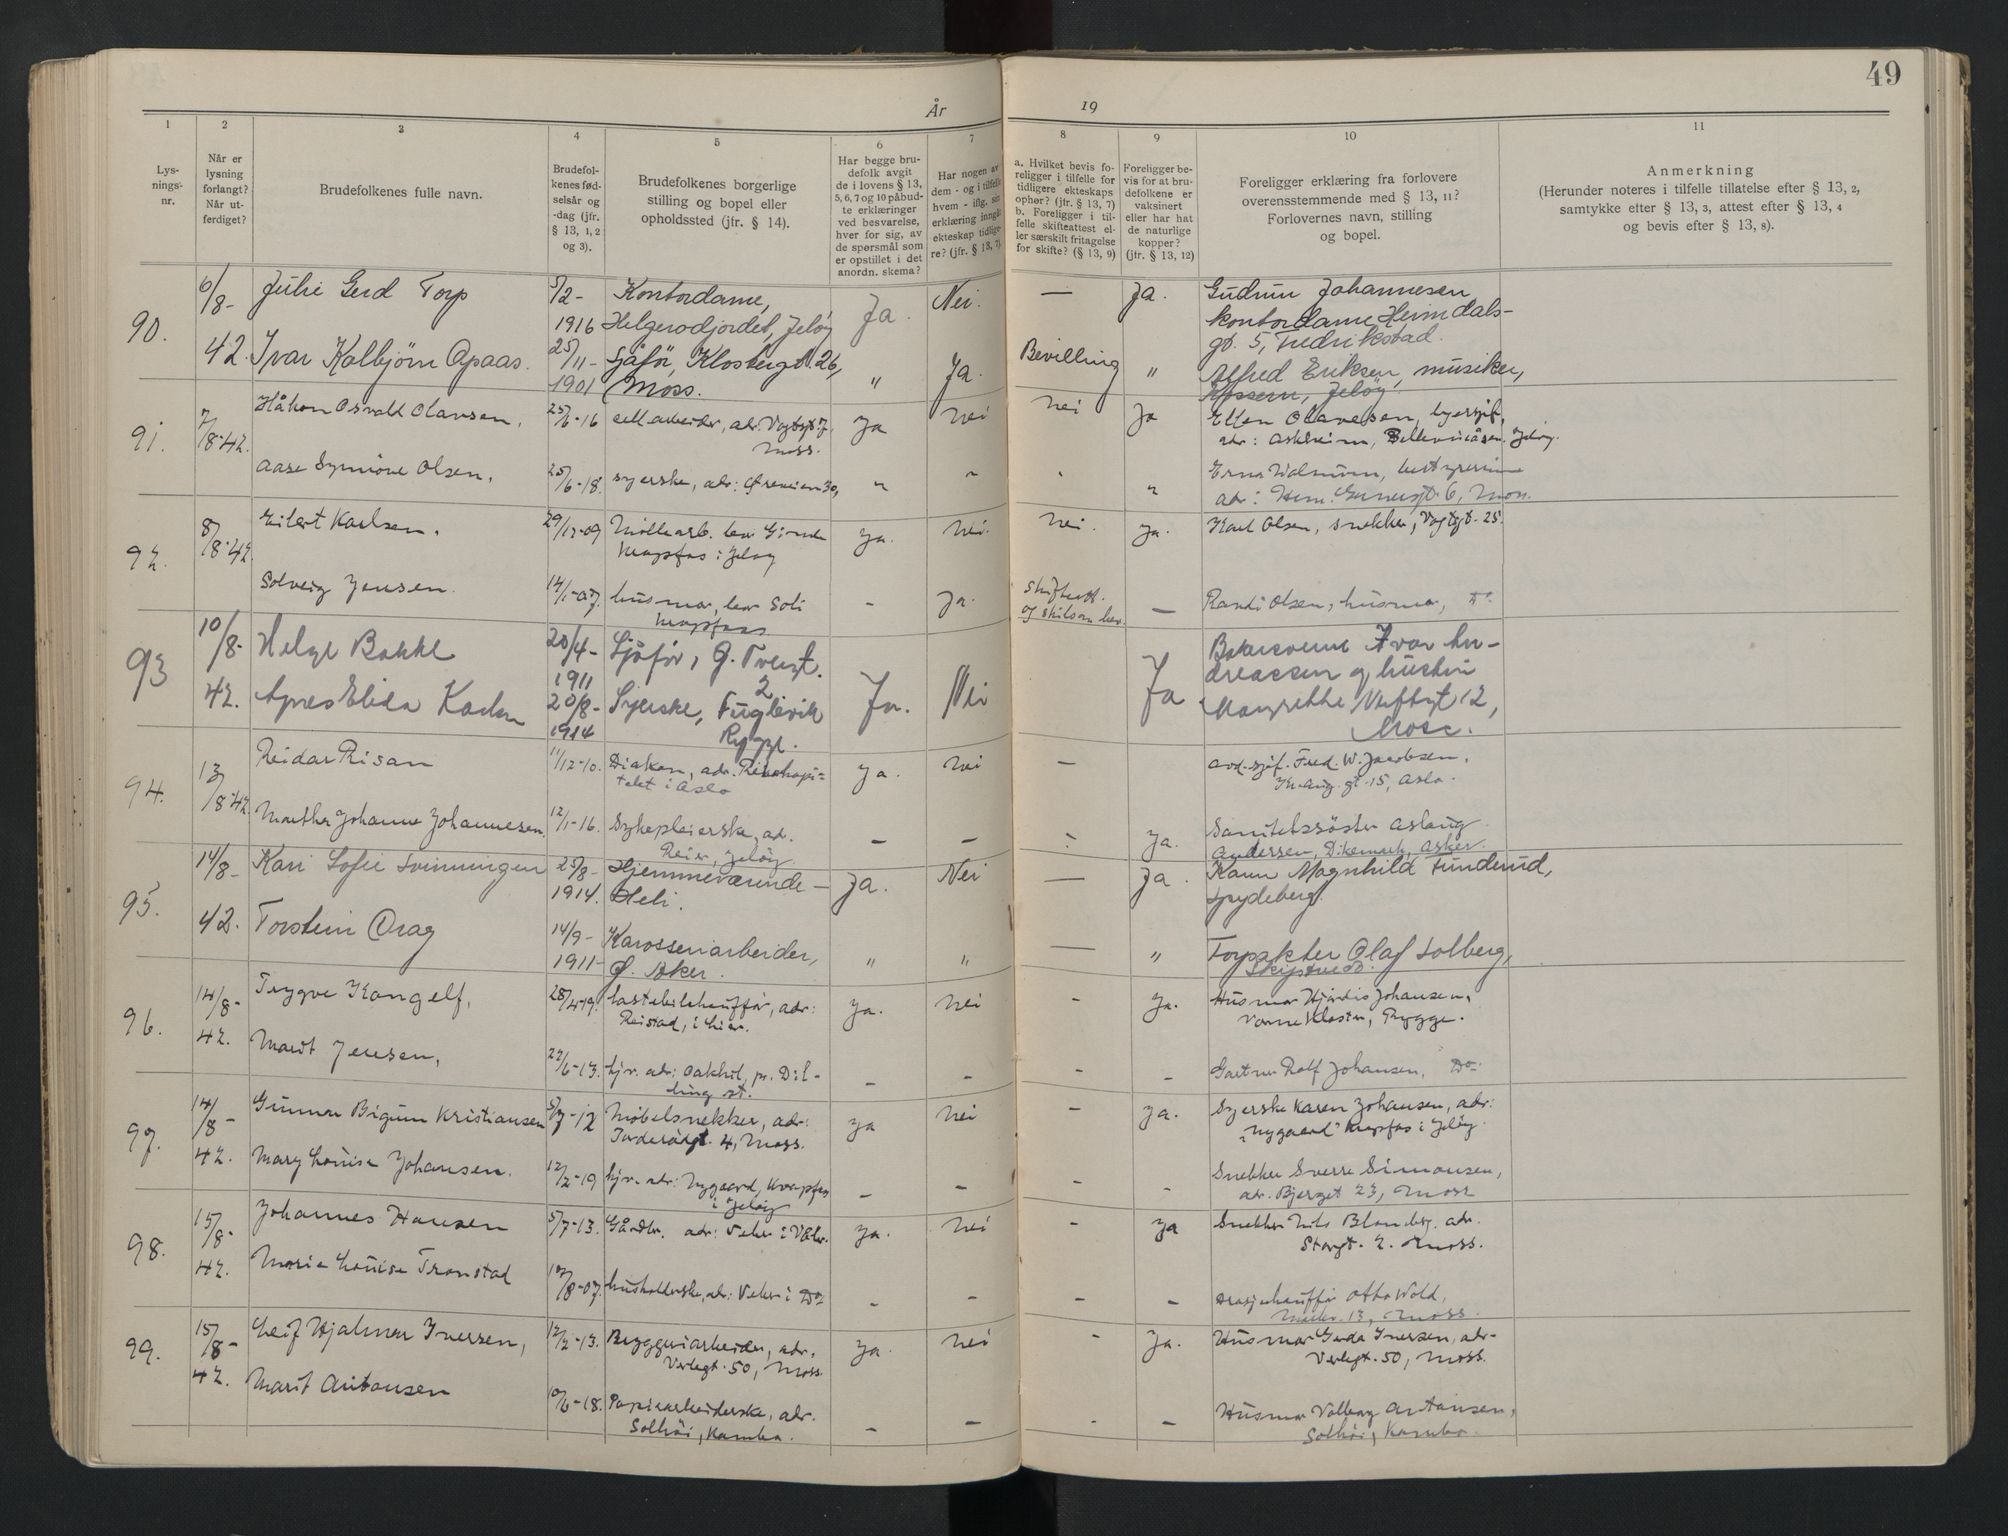 49
År 19
1 2 3 4 5 6 7 8 9 10 11
Lys-
nings-
nr.
Når er
lysning
forlangt?
Når ut-
ferdiget?
Brudefolkenes fulle navn.
Brudefol-
kenes fød-
selsår og
-dag (jfr.
§ 13, 1, 2
og 3).
Brudefolkenes borgerlige
stilling og bopel eller
opholdssted (jfr. § 14).
Har begge bru-
defolk avgit
de i lovens § 13,
5, 6, 7 og 10 påbud-
te erklæringer
ved besvarelse,
hver for sig, av
de spørsmål som
er opstillet i det
anordn. skema?
Har nogen av
dem - og i tilfelle
hvem - iflg. sin
erklæring inngått
ekteskap tidlige-
re? (jfr. § 13, 7).
a. Hvilket bevis fo-
religger i tilfelle for
tidligere ekteskaps
ophør? (jfr. § 13, 7)
b. Foreligger i til-
felle skifteattest el-
ler særskilt fritagelse
for skifte? (§ 13, 9)
Foreligger be-
vis for at bru-
defolkene er
vaksinert
eller har hat
de naturlige
kopper?
(jfr. § 13, 12)
Foreligger erklæring fra forlovere
overensstemmende med § 13, 11?
Forlovernes navn, stilling
og bopel.
Anmerkning
(Herunder noteres i tilfelle tillatelse efter § 13, 2,
samtykke efter § 13, 3, attest efter § 13, 4
og bevis efter § 13, 8).
90.
6/8-
42.
Julie Gerd Torp
5/2-
1916
Kontordame,
Helgerødjordet, Jeløy
Ja.
Nei.
—
Ja.
Gudrun Johannesen
kontordame Heimdals-
gt. 5, Fredrikstad.
Ivar Kolbjörn Opaas.
25/11-
1901
Sjåför, Klosbergt. 26,
Moss.
"
Ja.
Bevilling
"
Alfred Eriksen, musiker,
Jeløy.
91.
7/8-42.
Håkon Osvald Olavsen,
25/6-16
cell.arbeider, adr. Vogtsgt. 7
Moss.
Ja
nei
nei
Ja
Ellen Olavesen,
adr: Askheim, Jeløy.
Aase Synnöve Olsen,
25/6-18.
syerske, adr: 30,
"
"
"
Erna bestyrerinne
adr: Gernersgt. 6, Moss.
92.
8/8-42.
Eilert Karlsen.
29/12-09
Möllearb. bor Grude
Krapfos i Jeløy
Ja.
nei.
nei.
Ja.
Karl Olsen, snekker, Vogtgt. 25.
Solveig Jensen.
14/1-07.
husmor, bor Soli
Krapfoss
-
Ja.
Skifteatt.
og skilsm. bev.
—
Randi Olsen, husmor, Do.
93
10/8-
42.
Helge Bakke
20/4-
1911
Sjåför, G. Tvergt.
2
Ja.
Nei
Ja
Bakersvenn Ivar An-
dreassen og hustru
Margrethe 12,
Moss.
Agnes Elida Karlsen
20/8-
1914
Syerske, Fuglevik
Rygge.
94.
13/8-42.
Reidar Risan
11/12-10.
Diakon, adr. Rikshospi-
talet i Oslo
Ja.
nei
—
Fred. W. Jacobsen,
Kr. Aug. gt. 15, Oslo.
Marthe Johanne Johannesen.
12/1-16.
Sykepleierske, ad.
Reier, Jeløy
—
—
Ja.
Sanitetssöster Aslaug
Andersen, Dikemark, Asker.
95.
14/8-
42.
Kari Sofie Svinningen
25/8-
1914.
Hjemmeværende -
Heli.
Ja.
Nei
—
Ja.
Karen Magnhild Funderud,
Spydeberg.
Torstein Drag
14/9-
1911-
Karosseriarbeider,
Ø. Aker.
"
"
—
"
Forpakter Olaf Solberg,
Skiptvedt.
96.
14/8-
42.
Trygve Kongelf,
28/4-19.
Lastebilchufför, adr:
Reistad, i Lier.
Ja.
nei
-
Ja.
Husmor Hjördis Johansen,
Varne Kloster, Rygge.
Marit Jensen,
27/6-13.
hjv. adr: Oakhil, pr. Dil-
ling st.
-
-
-
-
Gartner Rolf Johansen, Do.
97.
14/8-
42.
Gunnar Bigum Kristiansen
5/7-12
Möbelsnekker, adr:
Torderödgt. 4, Moss.
Ja
nei
-
Ja.
Syerske Karen Johansen, adr:
"Nygaard" Krapfos i Jeløy.
Mary Louise Johansen.
12/2-19
hjv. adr: Nygaard, Krapfos
i Jeløy
-
-
-
-
Snekker Sverre Simonsen,
adr. Bjerget 23, Moss
98.
15/8-
42.
Johannes Hansen
5/7-13.
Gårdbr. adr: Veler i Våler.
Ja.
nei
-
Ja
Snekker Nils Blomberg, adr.
Storgt. 2. Moss.
Marie Louise Tronstad
19/8-07.
husholderske, adr: Veler i Do
-
-
-
-
Drosjechufför Otto Wold,
13, Moss.
99.
15/8-
42.
Leif Hjalmar Iversen,
12/2-13.
Bryggeriarbeider, adr.
Verlegt. 50, Moss
Ja.
nei
-
Ja.
Husmor Gerda Iversen, adr-
Verlegt. 50, Moss.
Marit Antonsen
10/6-18.
Papirarbeiderske, adr.
Solhöi, Kambo.
-
-
-
-
Husmor Valborg Antonsen,
Solhöi, Kambo.